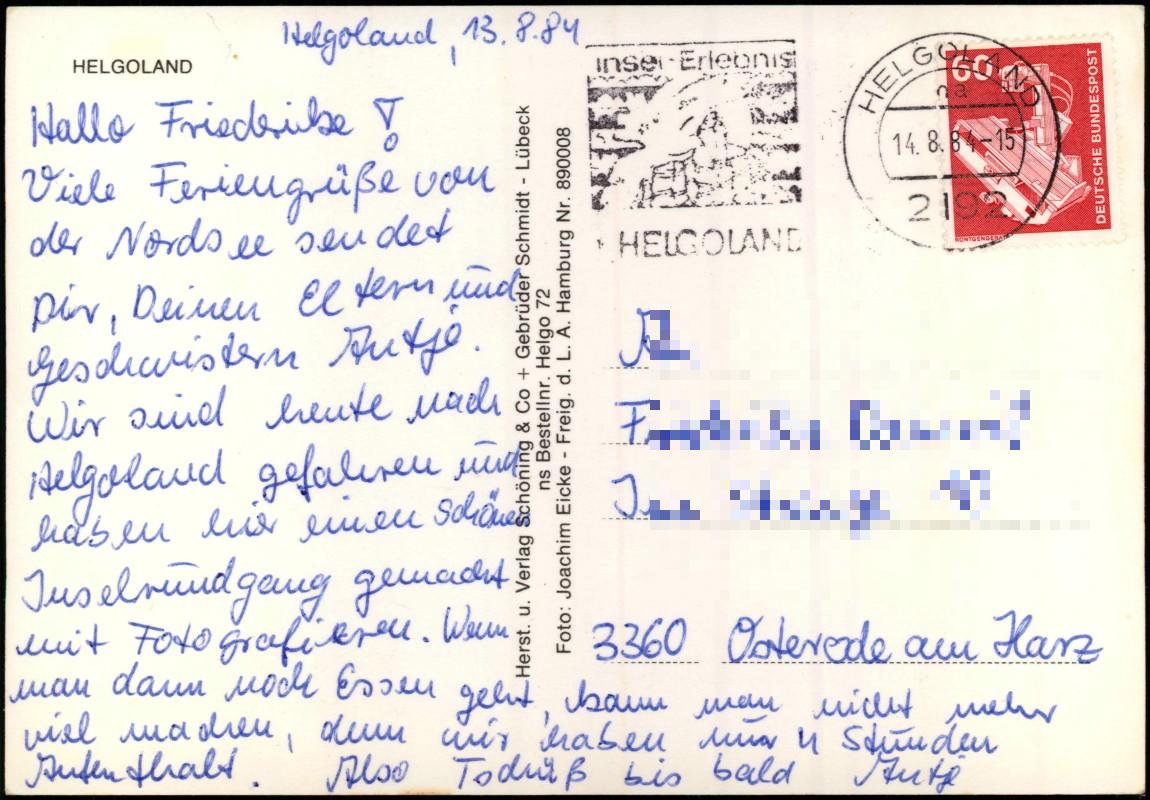 Helgoland, 13.8.84
HELGOLAND
Hallo Friederike!
Viele Feriengrüße von
der Nordsee sendet
Dir, Deinen Eltern und
Geschwistern Antje.
Wir sind heute nach
Helgoland gefahren und
haben hier einen schönen
Inselrundgang gemacht
mit Fotografieren. Wenn
man dann noch Essen geht, kann man nicht mehr
viel machen, denn wir haben nur 4 Stunden
Aufenthalt. Also Tschüß bis bald Antje
Herst. u. Verlag Schöning & Co + Gebrüder Schmidt - Lübeck
ns Bestellnr. Helgo 72
Foto: Joachim Eicke - Freig. d. L. A. Hamburg Nr. 890008
Insel-Erlebnis
HELGOLAND
HELGOLAND
na
14.8.84-15
2192
60
DEUTSCHE BUNDESPOST
3360 Osterode am Harz